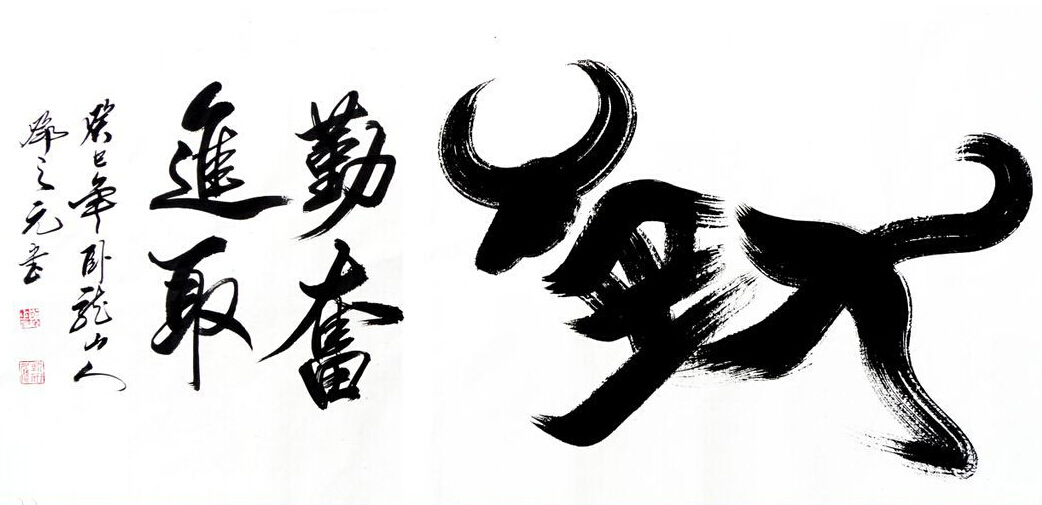 勤奮
進取
癸巳年卧龍山人
之元書